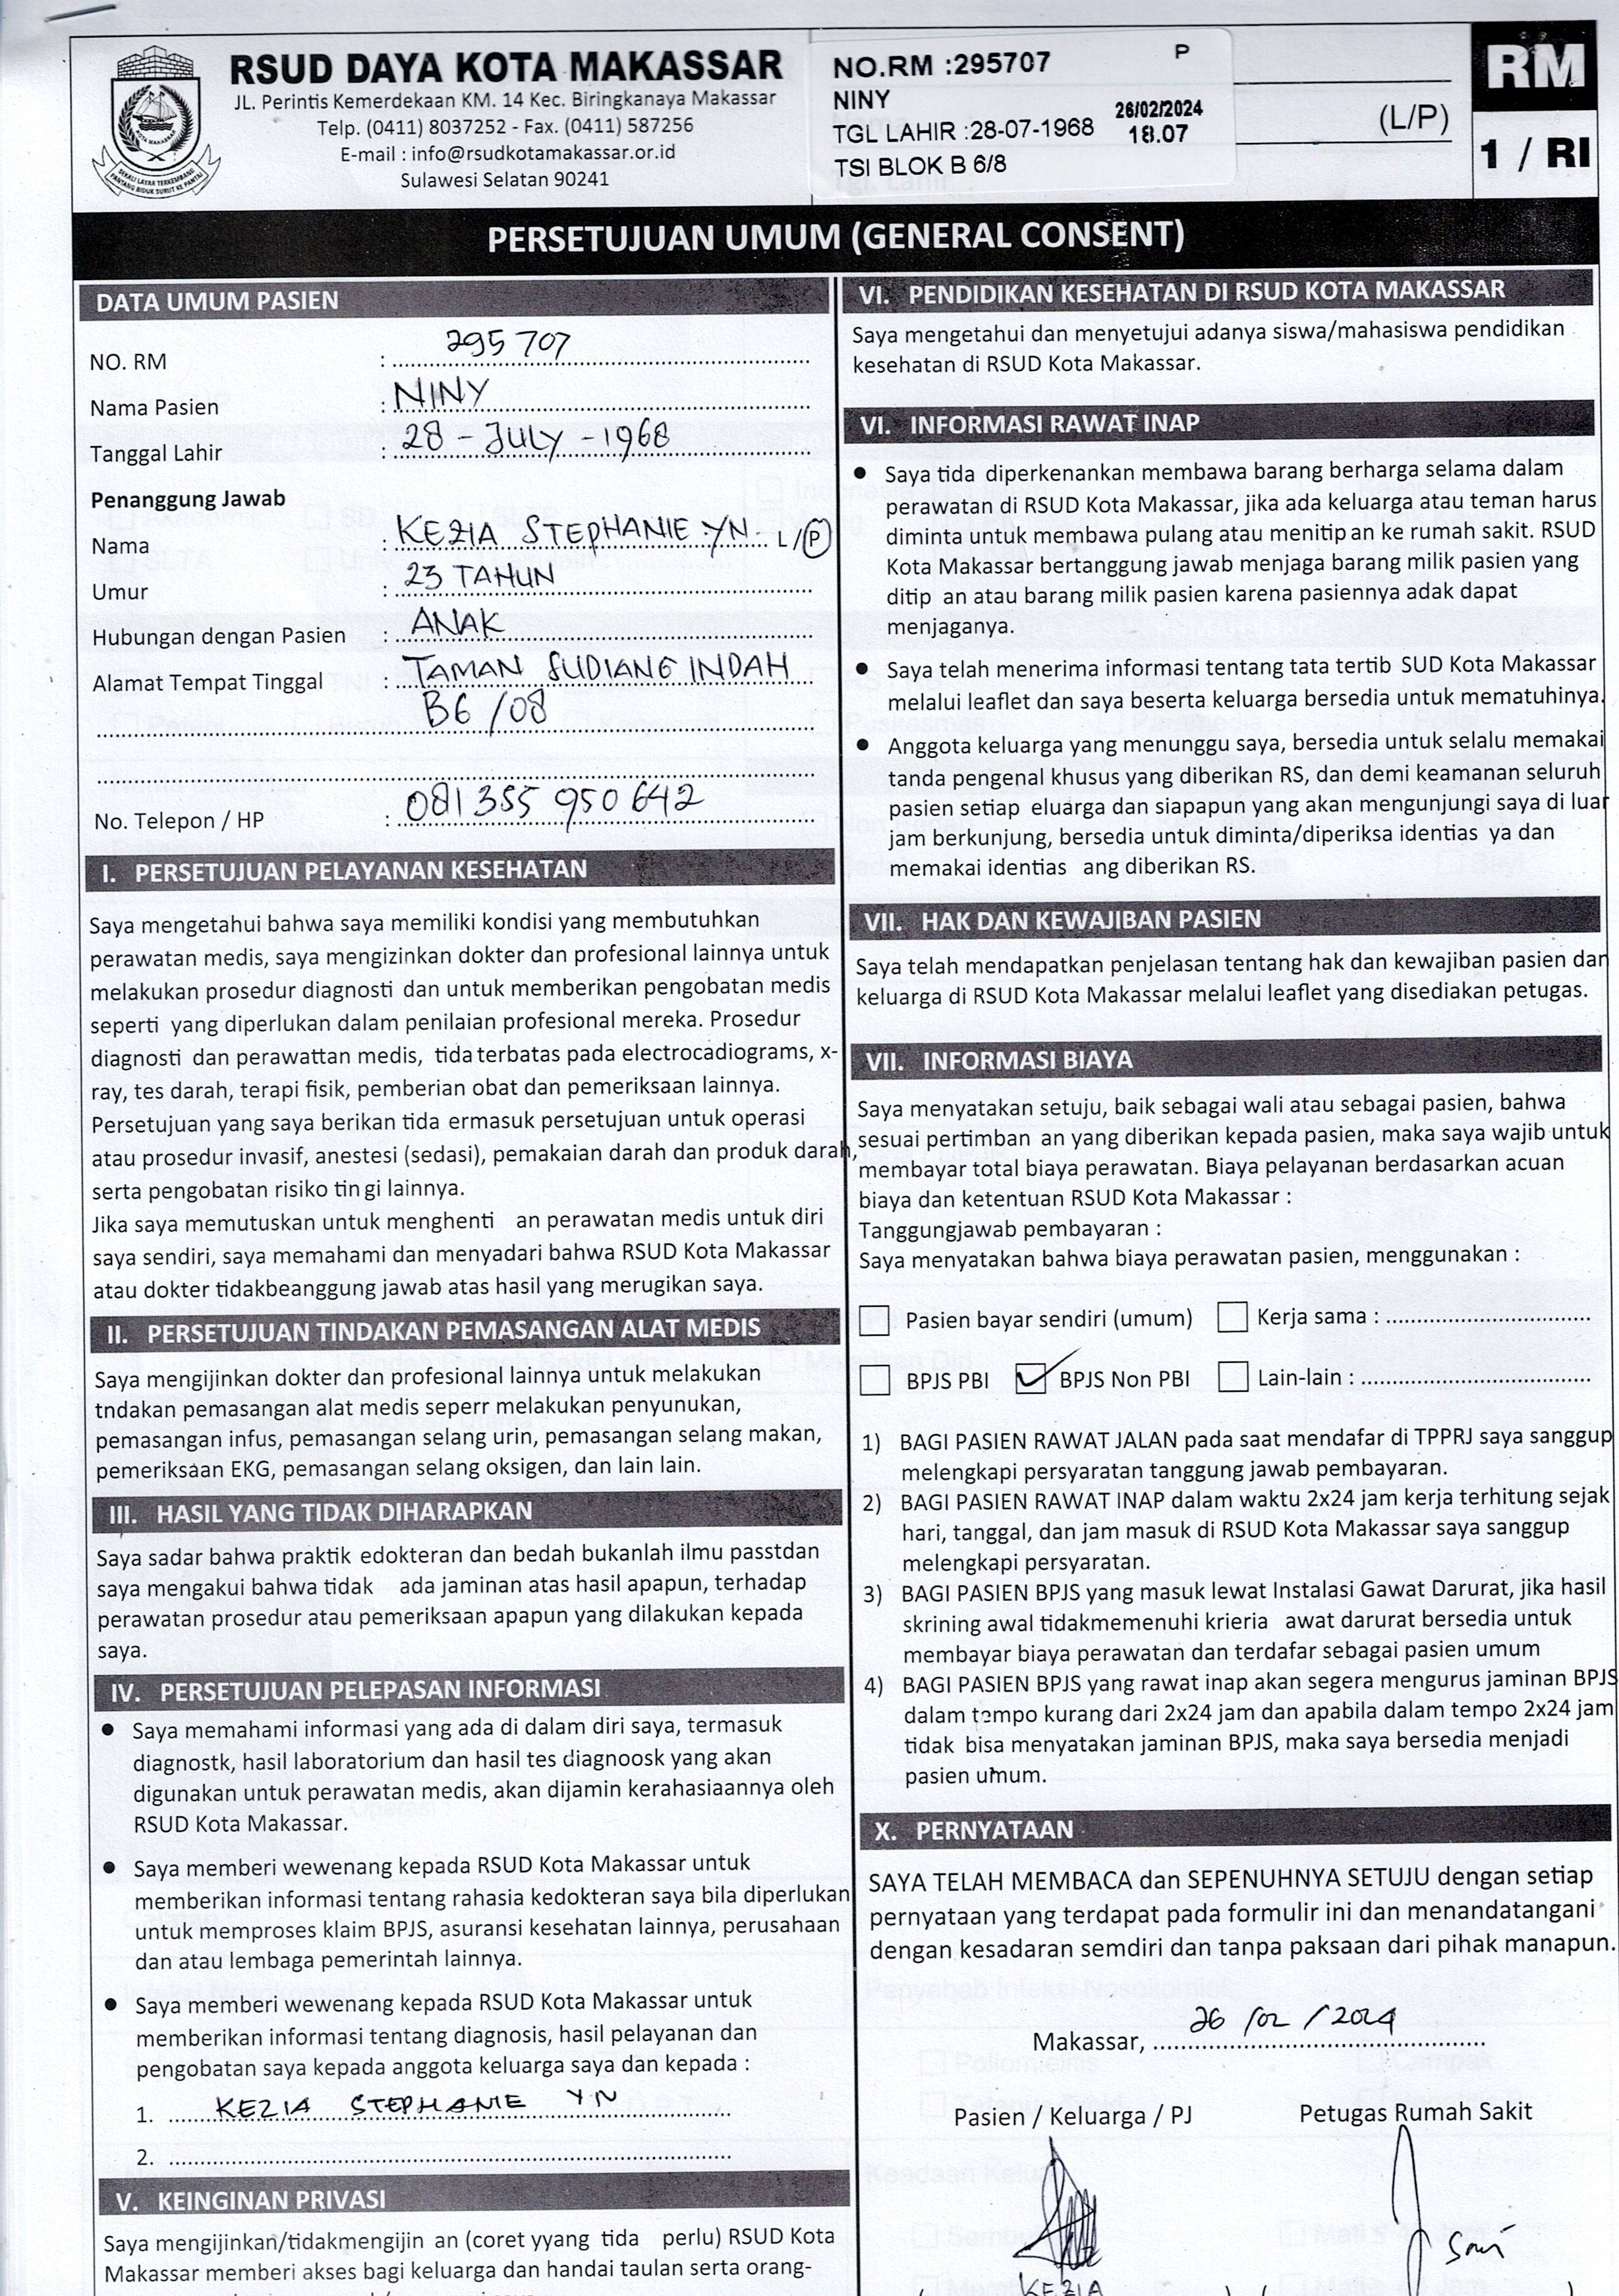 RSUD DAYA KOTA MAKASSAR
JL. Perintis Kemerdekaan KM. 14 Kec. Biringkanaya Makassar
Telp. (0411) 8037252 - Fax. (0411) 587256
E-mail : info@rsudkotamakassar.or.id
Sulawesi Selatan 90241
KOTA MAKASSAR
NO.RM :295707 P
NINY
TGL LAHIR :28-07-1968
26/02/2024
18.07
TSI BLOK B 6/8
(L/P)
RM
1 / RI
PERSETUJUAN UMUM (GENERAL CONSENT)
DATA UMUM PASIEN
NO. RM : 295 707
Nama Pasien : NINY
Tanggal Lahir : 28 - JULY - 1968
Penanggung Jawab
Nama : KEZIA STEPHANIE YN. L / P
Umur : 23 TAHUN
Hubungan dengan Pasien : ANAK
Alamat Tempat Tinggal : TAMAN SUDIANG INDAH
B6 / 08
No. Telepon / HP : 081 355 950 642
I. PERSETUJUAN PELAYANAN KESEHATAN
Saya mengetahui bahwa saya memiliki kondisi yang membutuhkan
perawatan medis, saya mengizinkan dokter dan profesional lainnya untuk
melakukan prosedur diagnosti dan untuk memberikan pengobatan medis
seperti yang diperlukan dalam penilaian profesional mereka. Prosedur
diagnosti dan perawattan medis, tida terbatas pada electrocadiograms, x-
ray, tes darah, terapi fisik, pemberian obat dan pemeriksaan lainnya.
Persetujuan yang saya berikan tida ermasuk persetujuan untuk operasi
atau prosedur invasif, anestesi (sedasi), pemakaian darah dan produk darah,
serta pengobatan risiko tin gi lainnya.
Jika saya memutuskan untuk menghenti an perawatan medis untuk diri
saya sendiri, saya memahami dan menyadari bahwa RSUD Kota Makassar
atau dokter tidakbeanggung jawab atas hasil yang merugikan saya.
II. PERSETUJUAN TINDAKAN PEMASANGAN ALAT MEDIS
Saya mengijinkan dokter dan profesional lainnya untuk melakukan
tndakan pemasangan alat medis seperr melakukan penyunukan,
pemasangan infus, pemasangan selang urin, pemasangan selang makan,
pemeriksaan EKG, pemasangan selang oksigen, dan lain lain.
III. HASIL YANG TIDAK DIHARAPKAN
Saya sadar bahwa praktik edokteran dan bedah bukanlah ilmu passtdan
saya mengakui bahwa tidak ada jaminan atas hasil apapun, terhadap
perawatan prosedur atau pemeriksaan apapun yang dilakukan kepada
saya.
IV. PERSETUJUAN PELEPASAN INFORMASI
● Saya memahami informasi yang ada di dalam diri saya, termasuk
diagnostk, hasil laboratorium dan hasil tes diagnoosk yang akan
digunakan untuk perawatan medis, akan dijamin kerahasiaannya oleh
RSUD Kota Makassar.
● Saya memberi wewenang kepada RSUD Kota Makassar untuk
memberikan informasi tentang rahasia kedokteran saya bila diperlukan
untuk memproses klaim BPJS, asuransi kesehatan lainnya, perusahaan
dan atau lembaga pemerintah lainnya.
● Saya memberi wewenang kepada RSUD Kota Makassar untuk
memberikan informasi tentang diagnosis, hasil pelayanan dan
pengobatan saya kepada anggota keluarga saya dan kepada :
1. KEZIA STEPHANIE YN
2.
V. KEINGINAN PRIVASI
Saya mengijinkan/tidakmengijin an (coret yyang tida perlu) RSUD Kota
Makassar memberi akses bagi keluarga dan handai taulan serta orang-
VI. PENDIDIKAN KESEHATAN DI RSUD KOTA MAKASSAR
Saya mengetahui dan menyetujui adanya siswa/mahasiswa pendidikan
kesehatan di RSUD Kota Makassar.
VI. INFORMASI RAWAT INAP
● Saya tida diperkenankan membawa barang berharga selama dalam
perawatan di RSUD Kota Makassar, jika ada keluarga atau teman harus
diminta untuk membawa pulang atau menitip an ke rumah sakit. RSUD
Kota Makassar bertanggung jawab menjaga barang milik pasien yang
ditip an atau barang milik pasien karena pasiennya adak dapat
menjaganya.
● Saya telah menerima informasi tentang tata tertib SUD Kota Makassar
melalui leaflet dan saya beserta keluarga bersedia untuk mematuhinya.
● Anggota keluarga yang menunggu saya, bersedia untuk selalu memakai
tanda pengenal khusus yang diberikan RS, dan demi keamanan seluruh
pasien setiap eluarga dan siapapun yang akan mengunjungi saya di luar
jam berkunjung, bersedia untuk diminta/diperiksa identias ya dan
memakai identias ang diberikan RS.
VII. HAK DAN KEWAJIBAN PASIEN
Saya telah mendapatkan penjelasan tentang hak dan kewajiban pasien dan
keluarga di RSUD Kota Makassar melalui leaflet yang disediakan petugas.
VII. INFORMASI BIAYA
Saya menyatakan setuju, baik sebagai wali atau sebagai pasien, bahwa
sesuai pertimban an yang diberikan kepada pasien, maka saya wajib untuk
membayar total biaya perawatan. Biaya pelayanan berdasarkan acuan
biaya dan ketentuan RSUD Kota Makassar :
Tanggungjawab pembayaran :
Saya menyatakan bahwa biaya perawatan pasien, menggunakan :
☐ Pasien bayar sendiri (umum) ☐ Kerja sama :
☐ BPJS PBI ☑ BPJS Non PBI ☐ Lain-lain :
1) BAGI PASIEN RAWAT JALAN pada saat mendafar di TPPRJ saya sanggup
melengkapi persyaratan tanggung jawab pembayaran.
2) BAGI PASIEN RAWAT INAP dalam waktu 2x24 jam kerja terhitung sejak
hari, tanggal, dan jam masuk di RSUD Kota Makassar saya sanggup
melengkapi persyaratan.
3) BAGI PASIEN BPJS yang masuk lewat Instalasi Gawat Darurat, jika hasil
skrining awal tidakmemenuhi krieria awat darurat bersedia untuk
membayar biaya perawatan dan terdafar sebagai pasien umum
4) BAGI PASIEN BPJS yang rawat inap akan segera mengurus jaminan BPJS
dalam tempo kurang dari 2x24 jam dan apabila dalam tempo 2x24 jam
tidak bisa menyatakan jaminan BPJS, maka saya bersedia menjadi
pasien umum.
X. PERNYATAAN
SAYA TELAH MEMBACA dan SEPENUHNYA SETUJU dengan setiap
pernyataan yang terdapat pada formulir ini dan menandatangani
dengan kesadaran semdiri dan tanpa paksaan dari pihak manapun.
Makassar, 26 / 02 / 2024
Pasien / Keluarga / PJ Petugas Rumah Sakit
KEZIA